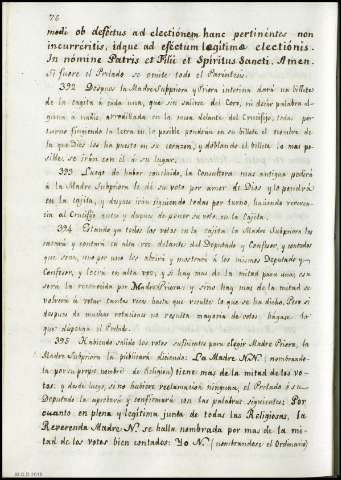 76
modi ob defectus ad electionem hanc pertinentes non
incurreritis, idque ad efectum legitimæ electionis.
In nómine Patris et Filii et Spiritus Sancti. Amen.
Si fuere el Prelado se omite todo el Paréntesis.
392 Despues la Madre Suppriora y Priora interina dará un billete
de la cajeta á cada una, que sin salirse del Coro, ni decir palabra al-
guna á nadie, arrodillada en la mesa delante del Crucifijo, todas por
turno fingiendo la letra en lo posible pondrán en su billete el nombre de
la que Dios les ha puesto en su corazon, y doblando el billete lo mas po-
sible, se irán con él á su lugar.
393 Luego de haber concluido, la Consultora mas antigua pedirá
á la Madre Subpriora le dé su voto por amor de Dios y lo pondrá
en la cajita, y despues irán siguiendo todas por turno, haciendo reveren-
cia al Crucifijo antes y despues de poner su voto en la Cajita.
394 Estando ya todos los votos en la cajita la Madre Subpriora los
sacará y contará en alta voz delante del Diputado y Confesor, y contados
que sean, uno por uno les abrirá y mostrará á los mismos Deputado y
Confesor, y leerá en alta voz; y si hay mas de la mitad para una, esa
será la reconocida por Madre Priora; y sino hay mas de la mitad se
volverá á votar tantas veces hasta que resulte lo que se ha dicho. Pero si
despues de muchas votaciones no resulta mayoría de votos, hágase lo
que disponga el Prelado.
395 Habiendo salido los votos suficientes para elegir Madre Priora, la
Madre Subpriora la publicará diciendo: La Madre N.N. (nombrando-
la por su propio nombre de Religion) tiene mas de la mitad de los vo-
tos: y desde luego, sino hubiere reclamacion ninguna, el Prelado ó su
Deputado la aprobará y confirmará con las palabras siguientes: Por
cuanto en plena y legítima junta de todas las Religiosas, la
Reverenda Madre N. se halla nombrada por mas de la mi-
tad de los votos bien contados: Yo N. (nombrandose el Ordinario)